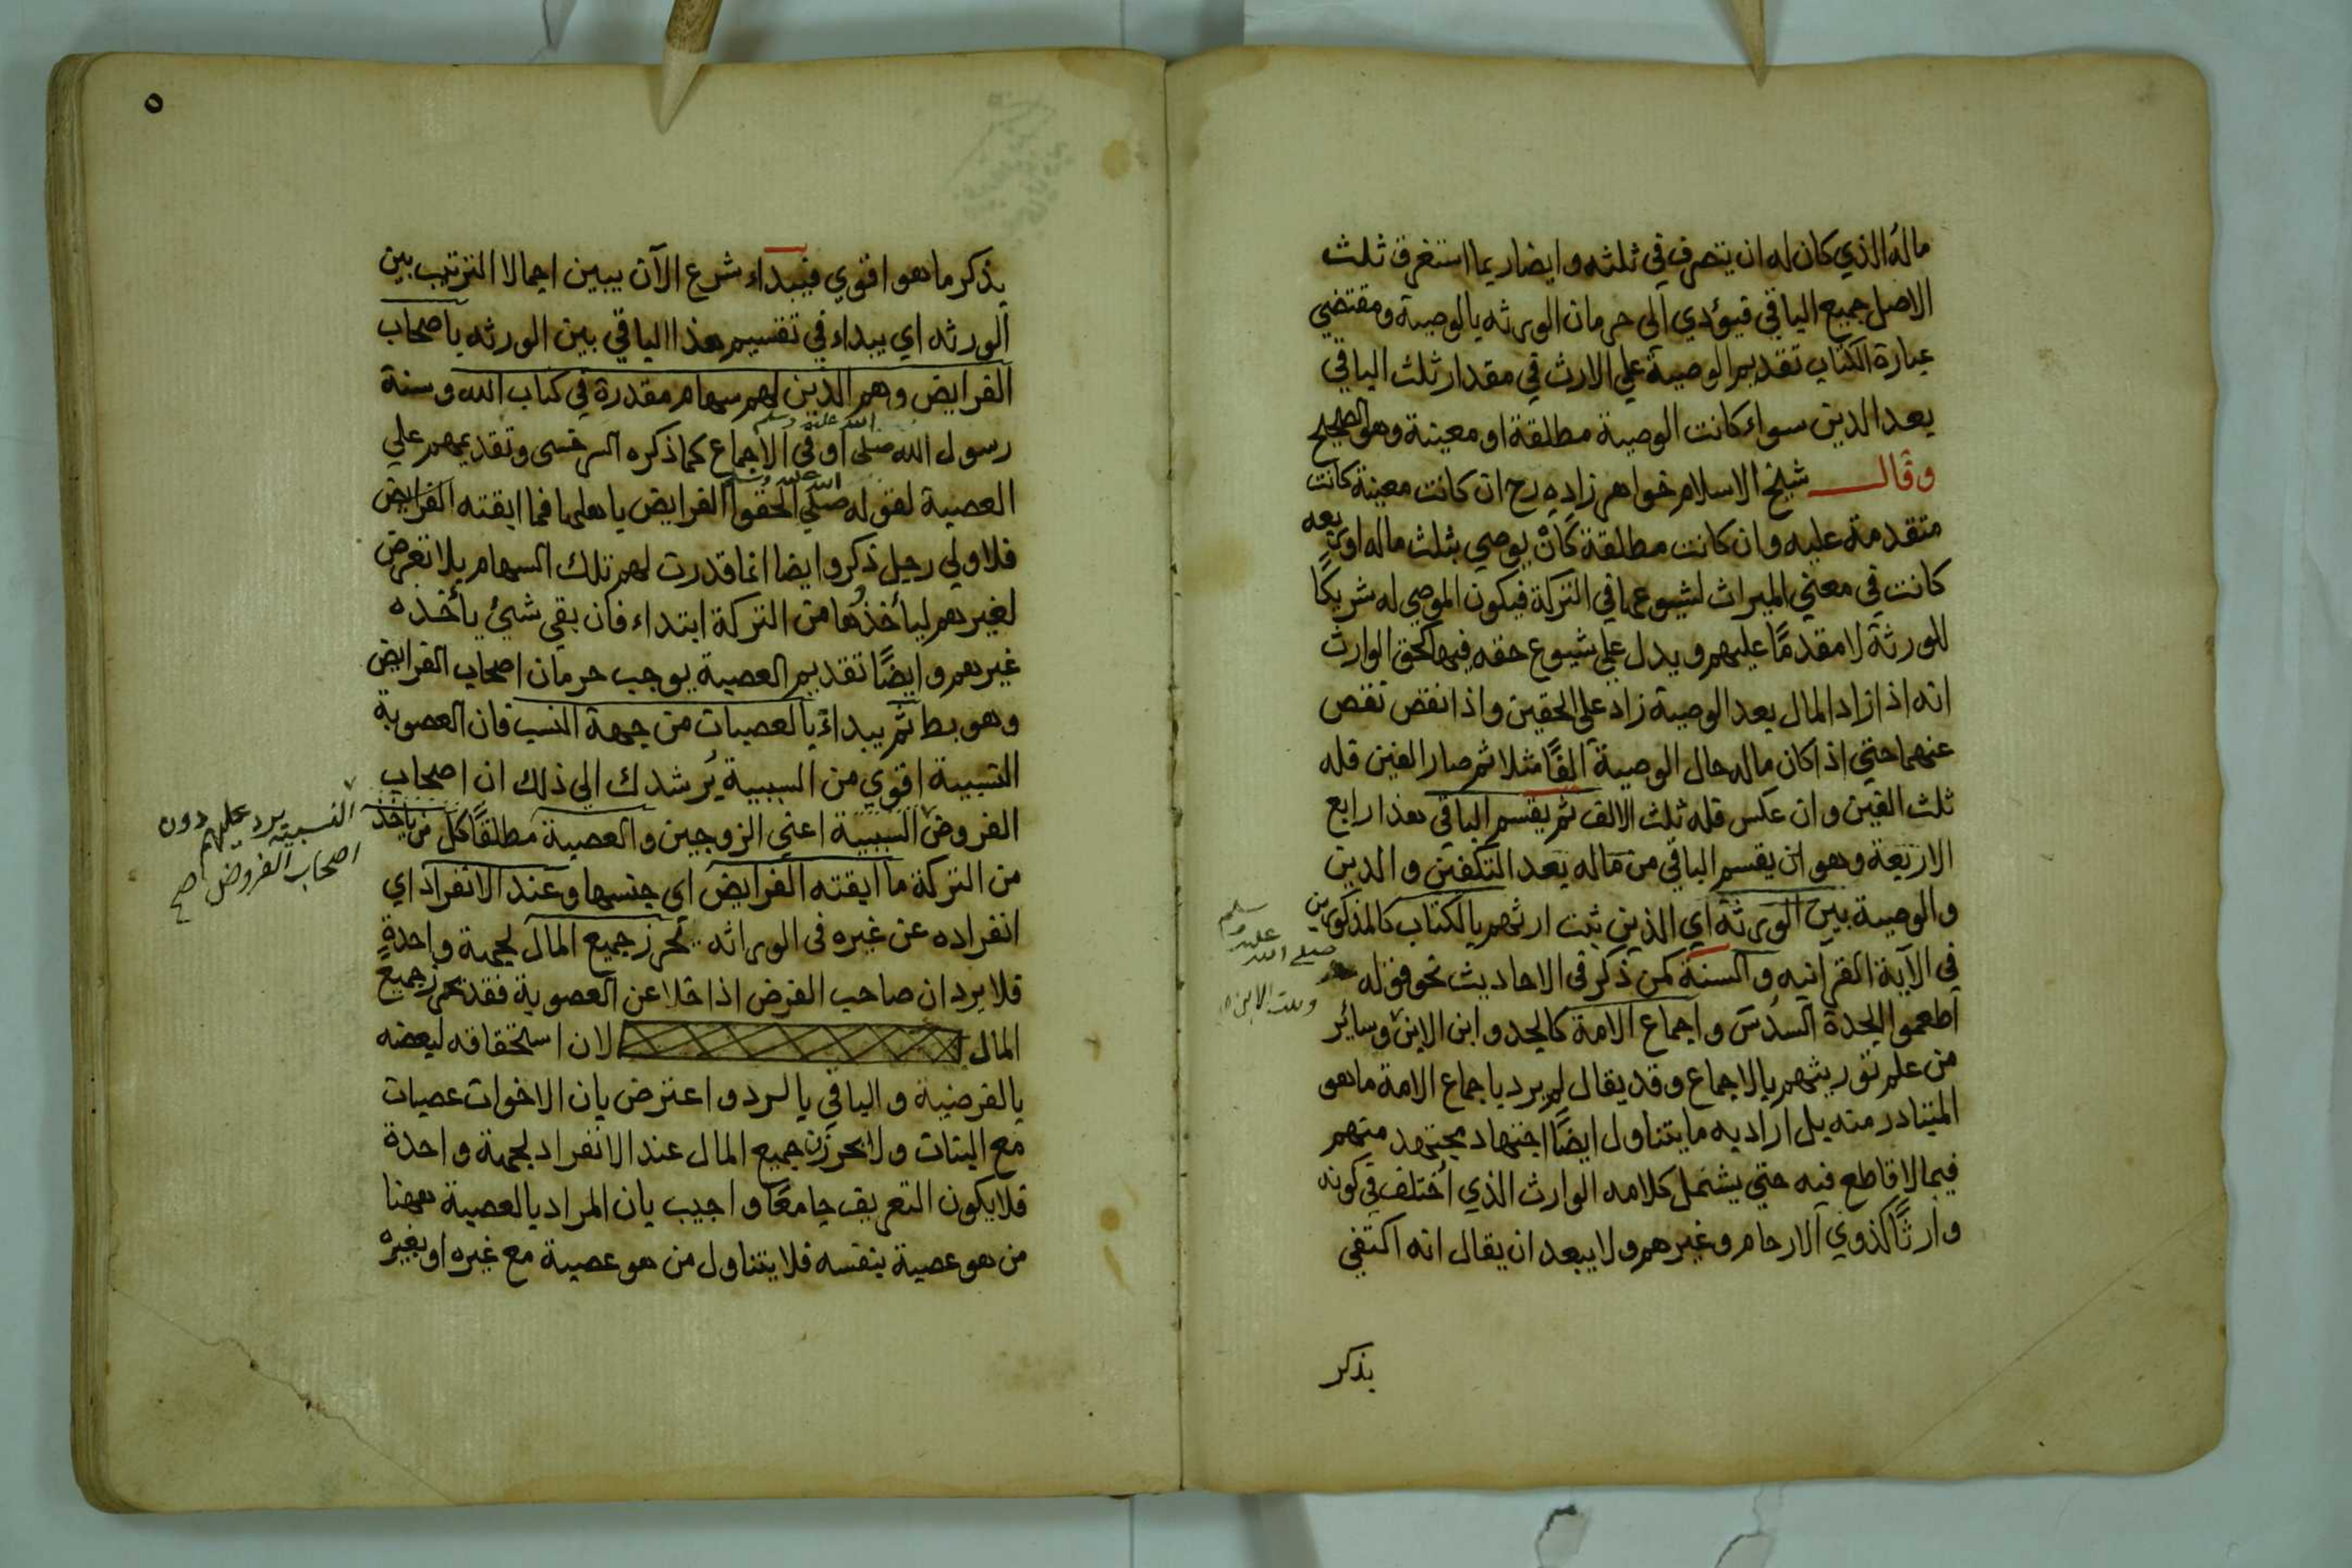 ماله الذي كان له ان يتصرف في ثلثه وايضا ربما استغرق ثلث
الاصل جميع الباقي فيؤدي الى حرمان الورثه بالوصية ومقتضي
عبارة الكتاب تقديم الوصية علي الارث في مقدار ثلث الباقي
بعد الدين سواء كانت الوصية مطلقة او معينة وهو الصحيح
وقال شيخ الاسلام خواهر زاده رح ان كانت معينة كانت
متقدمة عليه وان كانت مطلقة كأن يوصي بثلث ماله او ربعه
كانت في معني الميراث لشيوعها في التركة فيكون الموصي له شريكًا
للورثة لا مقدمًا عليهم ويدل علي شيوع حقه فيها كحق الوارث
انه اذا زاد المال بعد الوصية زاد علي الحقين واذا نقص نقص
عنهما حتي اذا كان ماله حال الوصية الفًا مثلا ثم صار الفين فله
ثلث الفين وان عكس فله ثلث الالف ثم يقسم الباقي هذا رابع
الاربعة وهو ان يقسم الباقي من ماله بعد التكفين والدين
والوصية بين الورثة اي الذين ثبت ارثهم بالكتاب كالمذكورين
في الآية القرآنيه والسنة كمن ذكر في الاحاديث نحو قوله
صلي الله عليه وسلم
اطعموا الجدة السدس واجماع الامة كالجد وابن الابن وسائر
وبنت الابن
من علم توريثهم بالاجماع وقد يقال لم يرد باجماع الامة ما هو
المتبادر منه بل اراد به ما يتناول ايضًا اجتهاد مجتهد منهم
فيما لا قاطع فيه حتي يشتمل كلامه الوارث الذي اختلف في كونه
وارثًا كذوي الارحام وغيرهم ولا يبعد ان يقال انه اكتفي
يذكر
٥
يذكر ما هو اقوي فيبداء شرع الآن يبين اجمالا الترتيب بين
الورثه اي يبداء في تقسيم هذا الباقي بين الورثه باصحاب
الفرايض وهم الذين لهم سهام مقدرة في كتاب الله وسنة
رسول الله صلي الله عليه وسلم او في الاجماع كما ذكره السرخسى وتقديمهم علي
العصبة لقوله صلي الله عليه وسلم الحقوا الفرايض باهلها فما ابقته الفرايض
فلاولي رجل ذكر وايضا انما قدرت لهم تلك السهام بلا تعرض
لغيرهم ليأخذوها من التركة ابتداء فان بقي شيئ يأخذه
غيرهم وايضًا تقديم العصبة يوجب حرمان اصحاب الفرايض
وهو بط ثم يبداء بالعصبات من جهة النسب فان العصوبة
النسبية اقوي من السببية يرشدك الي ذلك ان اصحاب
الفروض السببية اعني الزوجين والعصبة مطلقًا كل من ياخذ
النسبيه يرد عليهم دون
اصحاب الفروض صح
من التركة ما ابقته الفرايض اي جنسها وعند الانفراد اي
انفراده عن غيره في الوراثه يحرز جميع المال لجهة واحدة
فلا يرد ان صاحب الفرض اذا خلا عن العصوبة فقد يحرز جميع
المال لان استحقاقه لبعضه
بالفرضية والباقي بالرد واعترض بان الاخوات عصبات
مع البنات ولا يحرزن جميع المال عند الانفراد لجهة واحدة
فلا يكون التعريف جامعًا واجيب بان المراد بالعصبة ههنا
من هو عصبة بنفسه فلا يتناول من هو عصبة مع غيره او بغيره